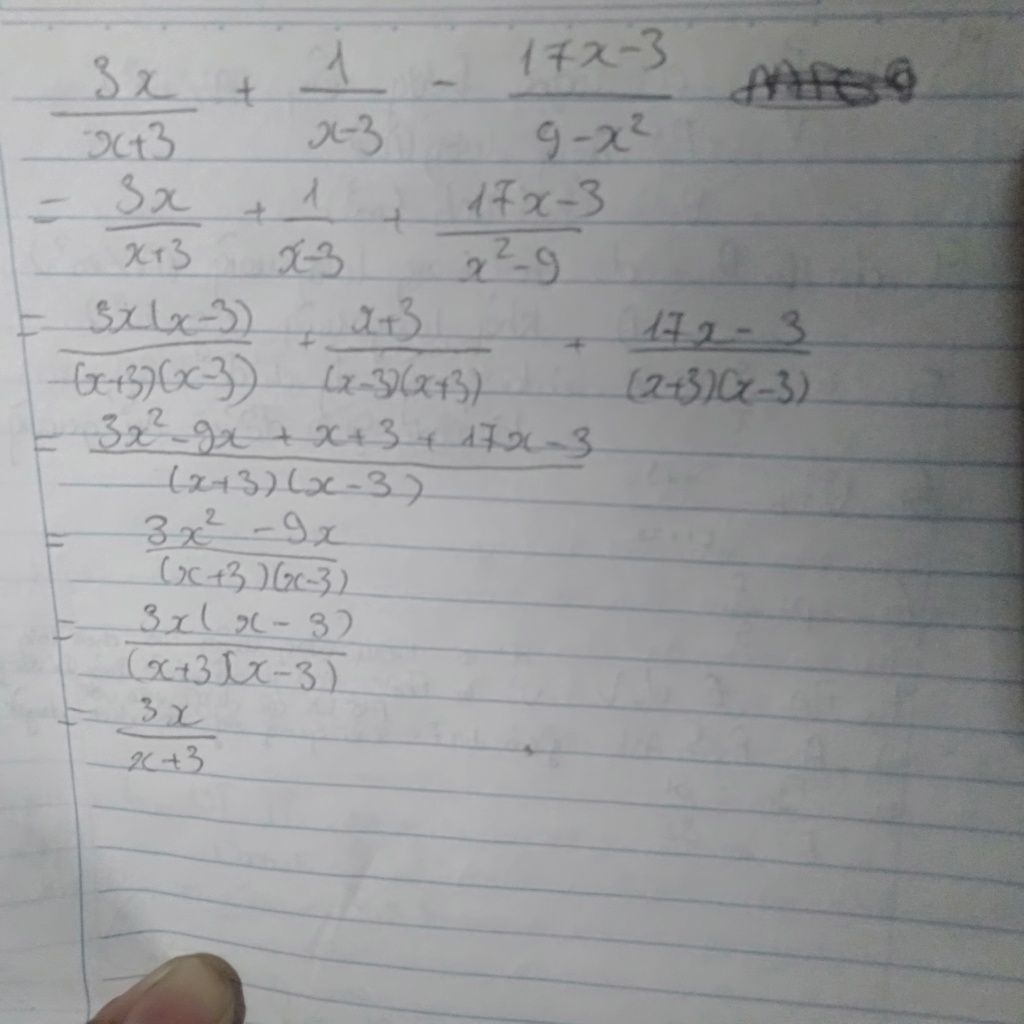 3x/(x+3) + 1/(x-3) - (17x-3)/(9-x²)
= 3x/(x+3) + 1/(x-3) + (17x-3)/(x²-9)
= 3x(x-3)/((x+3)(x-3)) + (x+3)/((x-3)(x+3)) + (17x-3)/((x+3)(x-3))
= (3x²-9x+x+3+17x-3)/((x+3)(x-3))
= (3x²-9x)/((x+3)(x-3))
= 3x(x-3)/((x+3)(x-3))
= 3x/(x+3)